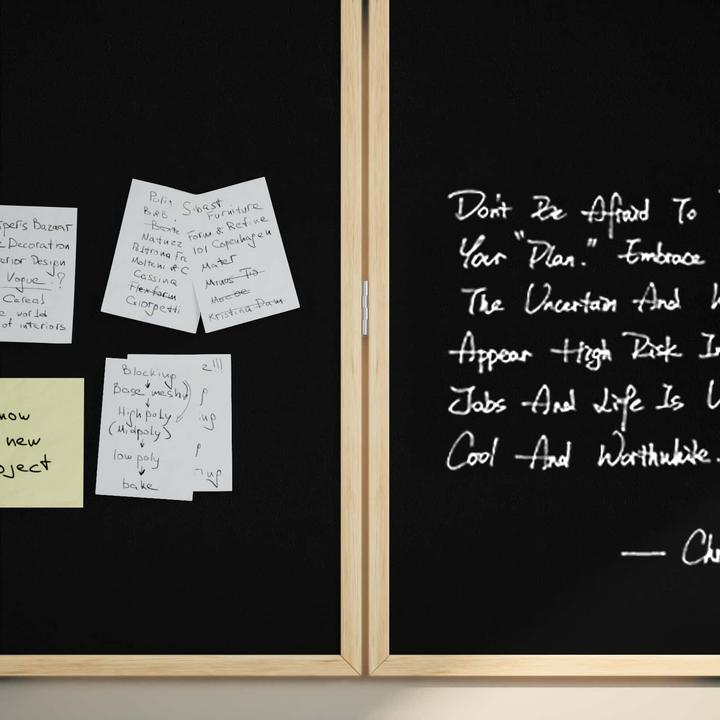 per's Bazaar
Decoration
erior Design
Vogue ?
Cereal
e world
of interiors
now
new
oject
Polif
B&B.
Natuzz
Poltrona Fr
Molteni & C
Cassina
Flexform
Giorgetti
Sibast
Furniture
Form & Refine
101 Copenhagen
Mater
Kristina Dam
Blocking
Base mesh
High poly
(Midpoly)
low poly
bake
2!!!
Don't Be Afraid To
Your "Plan." Embrace
The Uncertain And
Appear High Risk In
Jobs And Life Is
Cool And Worthwhile.
— Ch